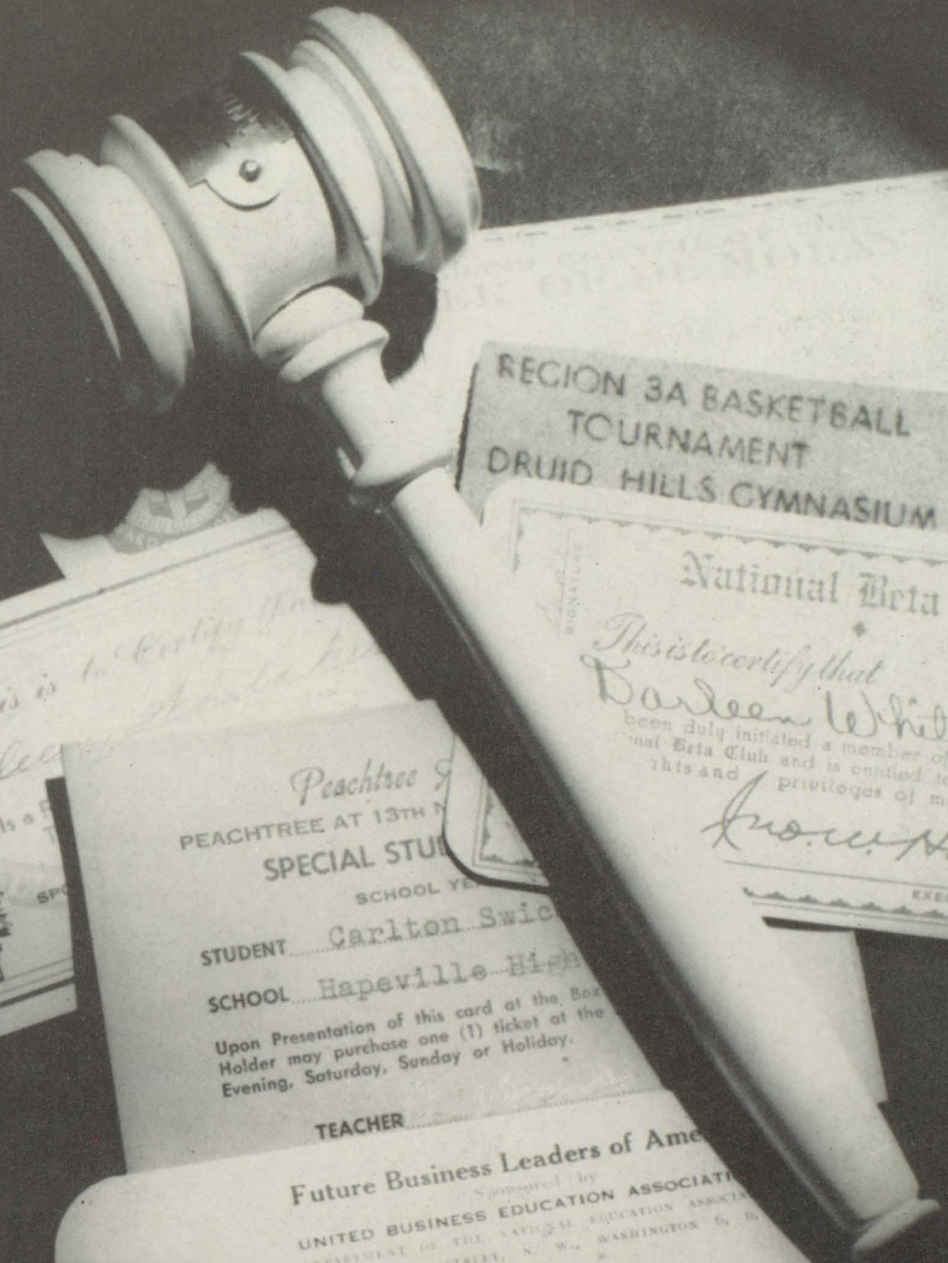 REGION 3A BASKETBALL
TOURNAMENT
DRUID HILLS GYMNASIUM
National Beta
This is to certify that
Darleen
been duly initiated a member of
Beta Club and is entitled
and privileges of
Jno. W.
SIGNATURE
is is to Certify that
ls a
SPO
Peachtree
PEACHTREE AT 13TH
SPECIAL STU
SCHOOL YE
STUDENT Carlton Swic
SCHOOL Hapeville High
Upon Presentation of this card at the Box
Holder may purchase one (1) ticket at the
Evening, Saturday, Sunday or Holiday.
TEACHER
Future Business Leaders of Ame
Sponsored by
UNITED BUSINESS EDUCATION ASSOCIATI
OF THE NATIONAL EDUCATION ASSOCIA
STREET, N. W., WASHINGTON 6, D.